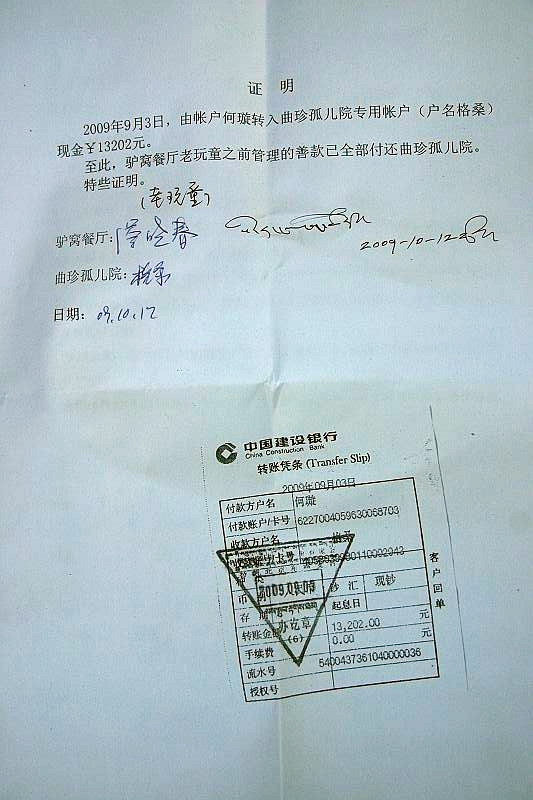 证 明
2009年9月3日，由帐户何璇转入曲珍孤儿院专用帐户（户名格桑）
现金￥13202元。
至此，驴窝餐厅老玩童之前管理的善款已全部付还曲珍孤儿院。
特些证明。
(老玩童)
驴窝餐厅：
2009-10-12
曲珍孤儿院：格桑
日期：09.10.12
中国建设银行
China Construction Bank
转账凭条 (Transfer Slip)
2009年09月03日
付款方户名 何璇
付款账户/卡号 6227004059630068703
收款方户名 格桑
2009.09.03
钞 汇 现钞
起息日
办讫章
(6)
转账金额 13,202.00 元
手续费 0.00 元
流水号 5400437361040000036
授权号
客户回单